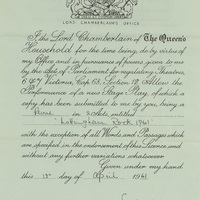 LORD CHAMBERLAIN'S OFFICE
I the Lord Chamberlain of The Queen's
Household for the time being, do by virtue of
my Office and in pursuance of powers given to me
by the Act of Parliament for regulating Theatres,
6 & 7 Victoria, Cap. 68, Section 12 Allow the
Performance of a new Stage Play, of which a
copy has been submitted to me by you, being a
in 2 entitled
" Rock 1961"
with the exception of all Words and Passages which
are specified in the endorsement of this Licence and
without any further variations whatsoever
Given under my hand
this 15th day of April 1961